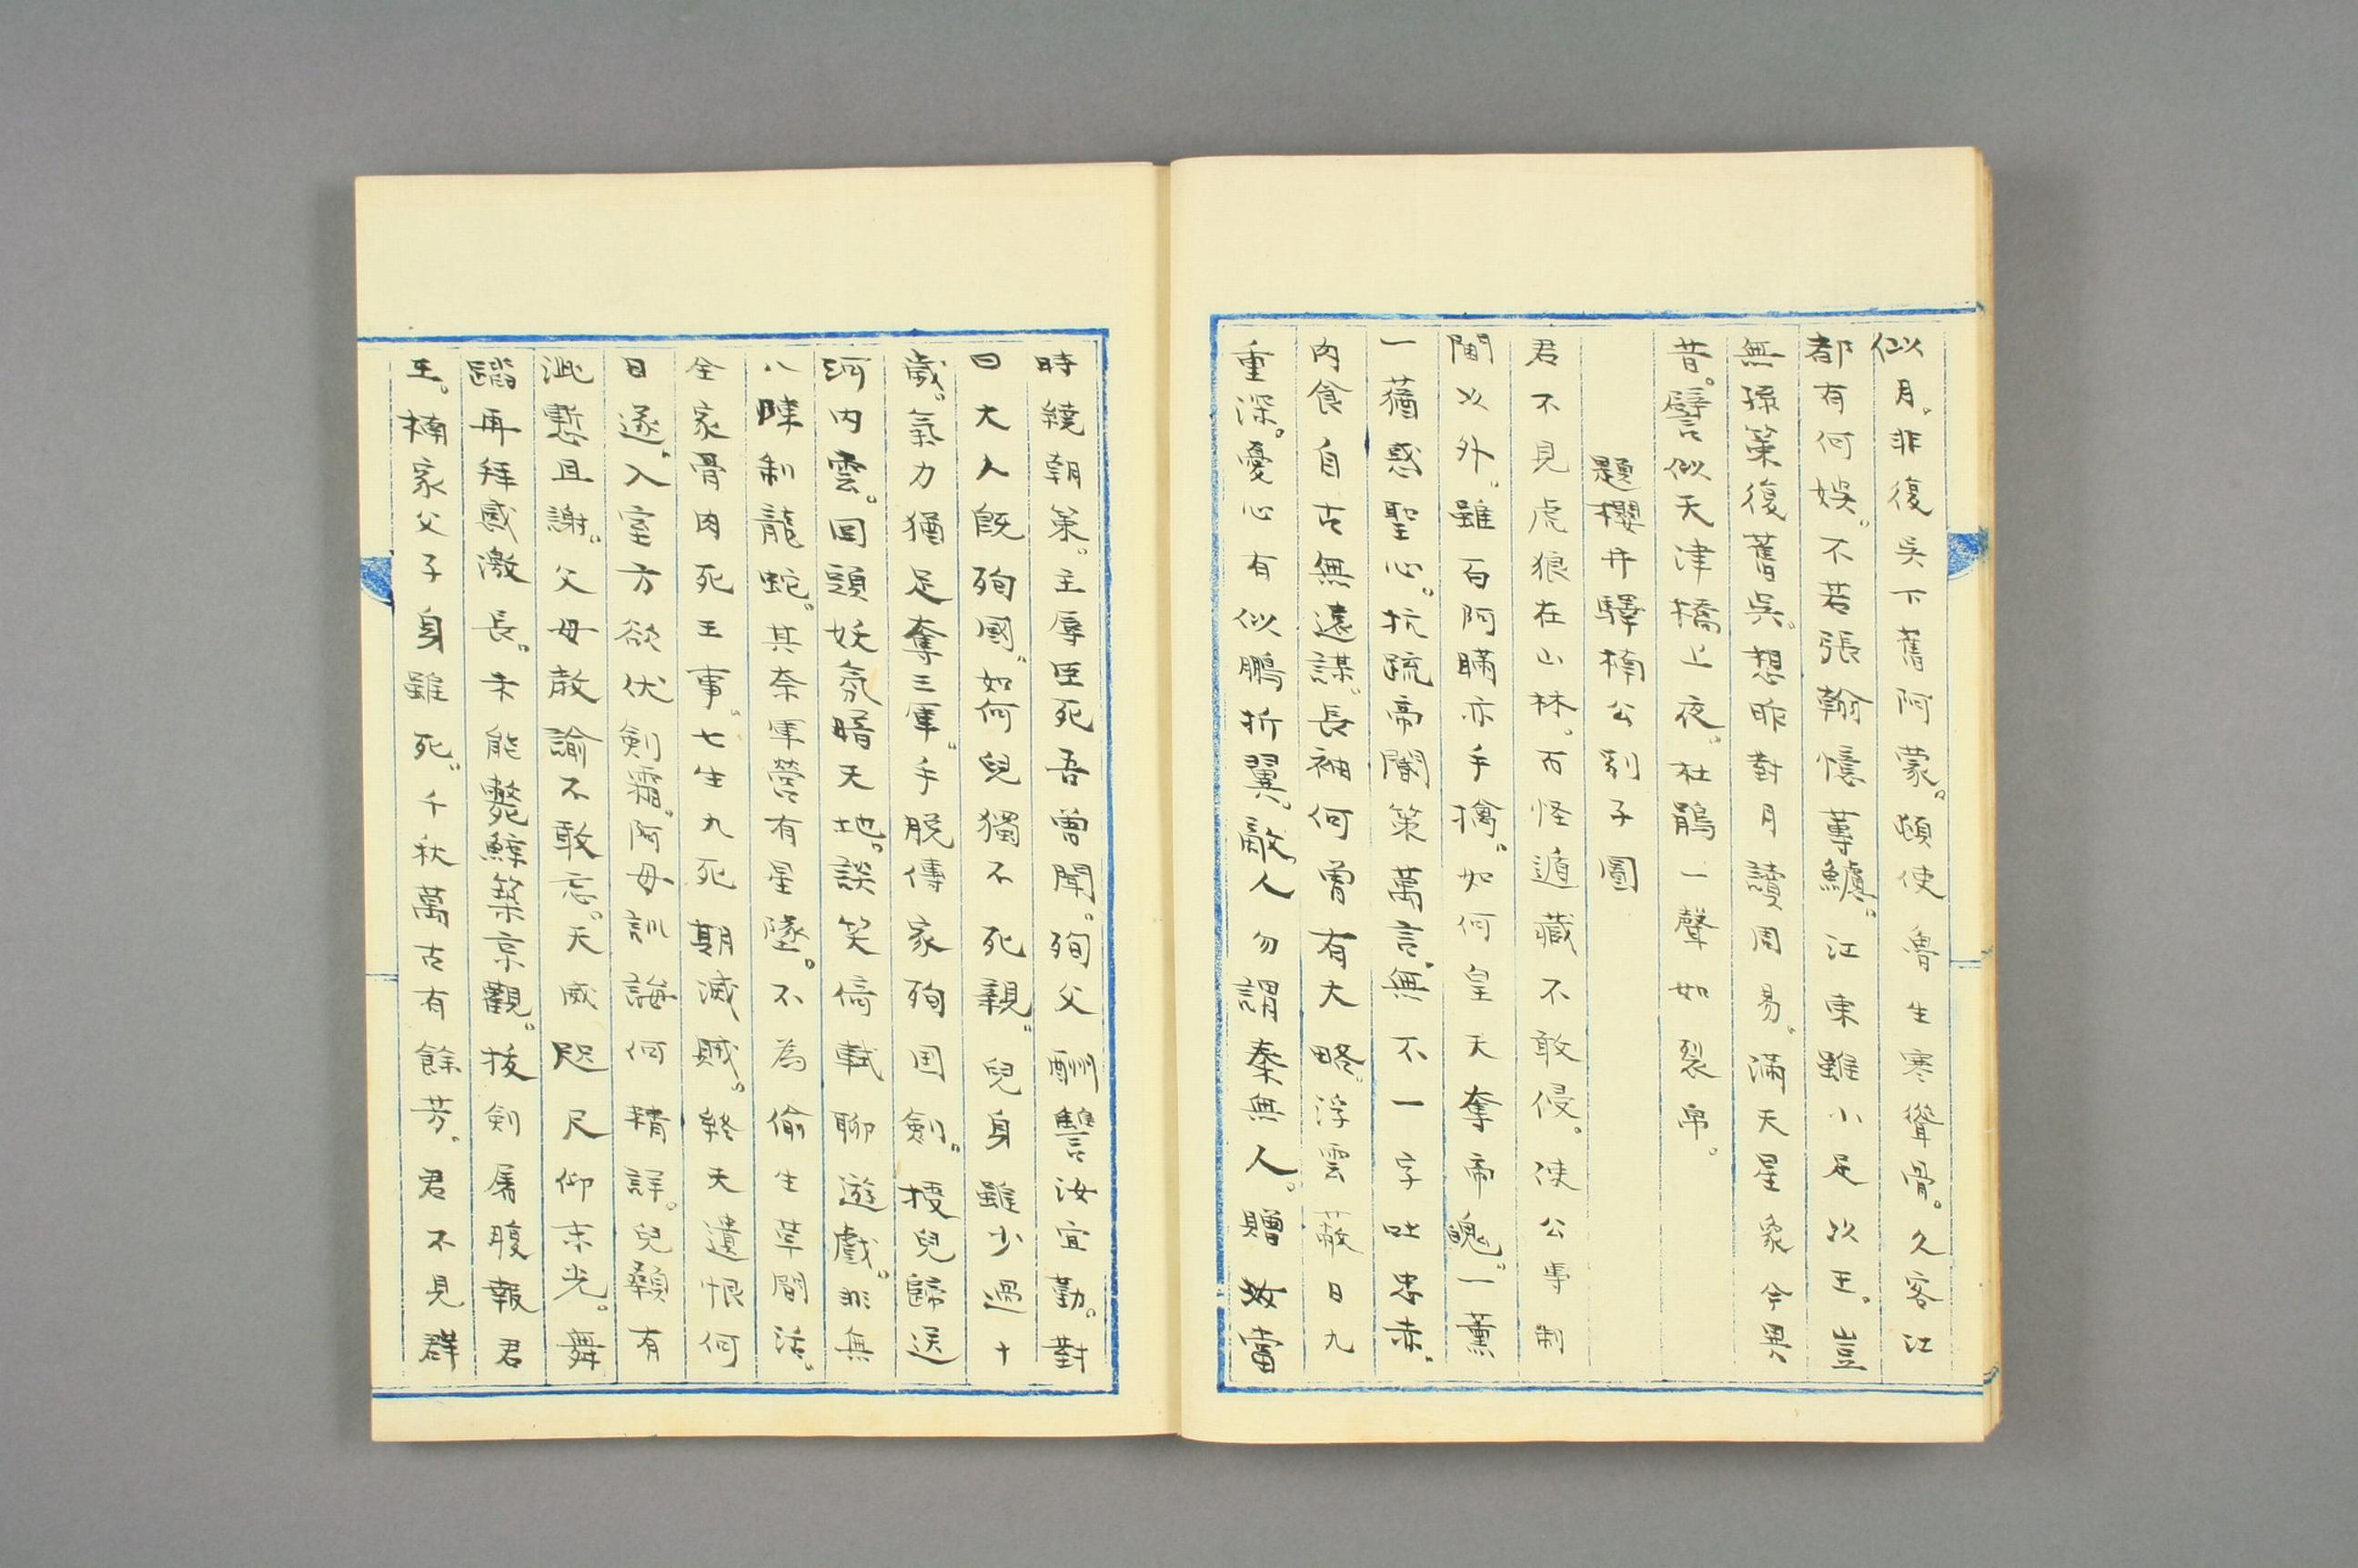 似月。非復吳下舊阿蒙。頗使魯生寒聳骨。久客江
都有何娛。不若張翰憶蓴鱸。江東雖小足以王。豈
無孫策復舊吳。想昨對月讀周易。滿天星象今異
昔。譬似天津橋上夜。杜鵑一聲如裂帛。
題櫻井驛楠公別子圖
君不見虎狼在山林。百怪遁藏不敢侵。使公專制
閫以外。雖百阿瞞亦手擒。如何皇天奪帝魄。一薰
一蕕惑聖心。抗疏帝闕策萬言。無不一字吐忠赤。
肉食自古無遠謀。長袖何曾有大略。浮雲蔽日九
重深。憂心有似鵬折翼。敵人勿謂秦無人。贈汝當
時繞朝策。主辱臣死吾曾聞。殉父酬讐汝宜勤。對
曰大人既殉國。如何兒獨不死親。兒身雖少過十
歲。氣力猶足奪三軍。手脫傳家殉国劍。授兒歸送
河內雲。回頭妖氛暗天地。談笑倚軾聊遊戲。非無
八陣制龍蛇。其奈軍營有星墜。不為偷生草間活。
全家骨肉死王事。七生九死期滅賊。終天遺恨何
日遂。入室方欲伏劍霜。阿母訓誨何精詳。兒顙有
泚慙且謝。父母教諭不敢忘。天威咫尺仰末光。舞
蹈再拜感激長。未能斃鯨築京觀。拔劍屠腹報君
王。楠家父子身雖死。千秋萬古有餘芳。君不見群